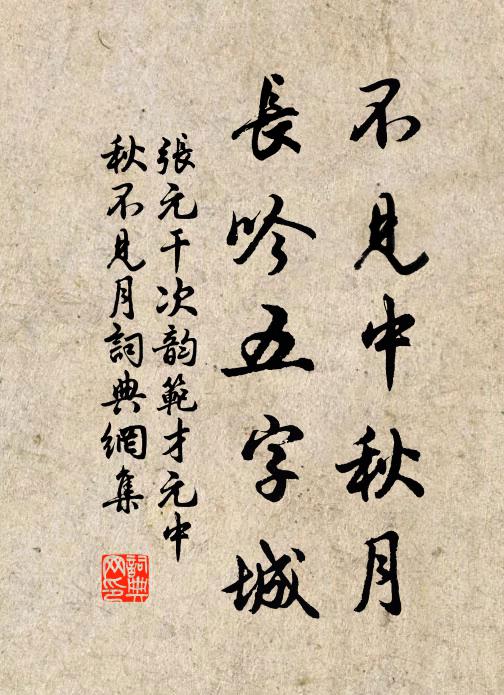 不見中秋月
長吟五字城
張元干次韵範才元中
秋不見月詞典網集
詞典网印